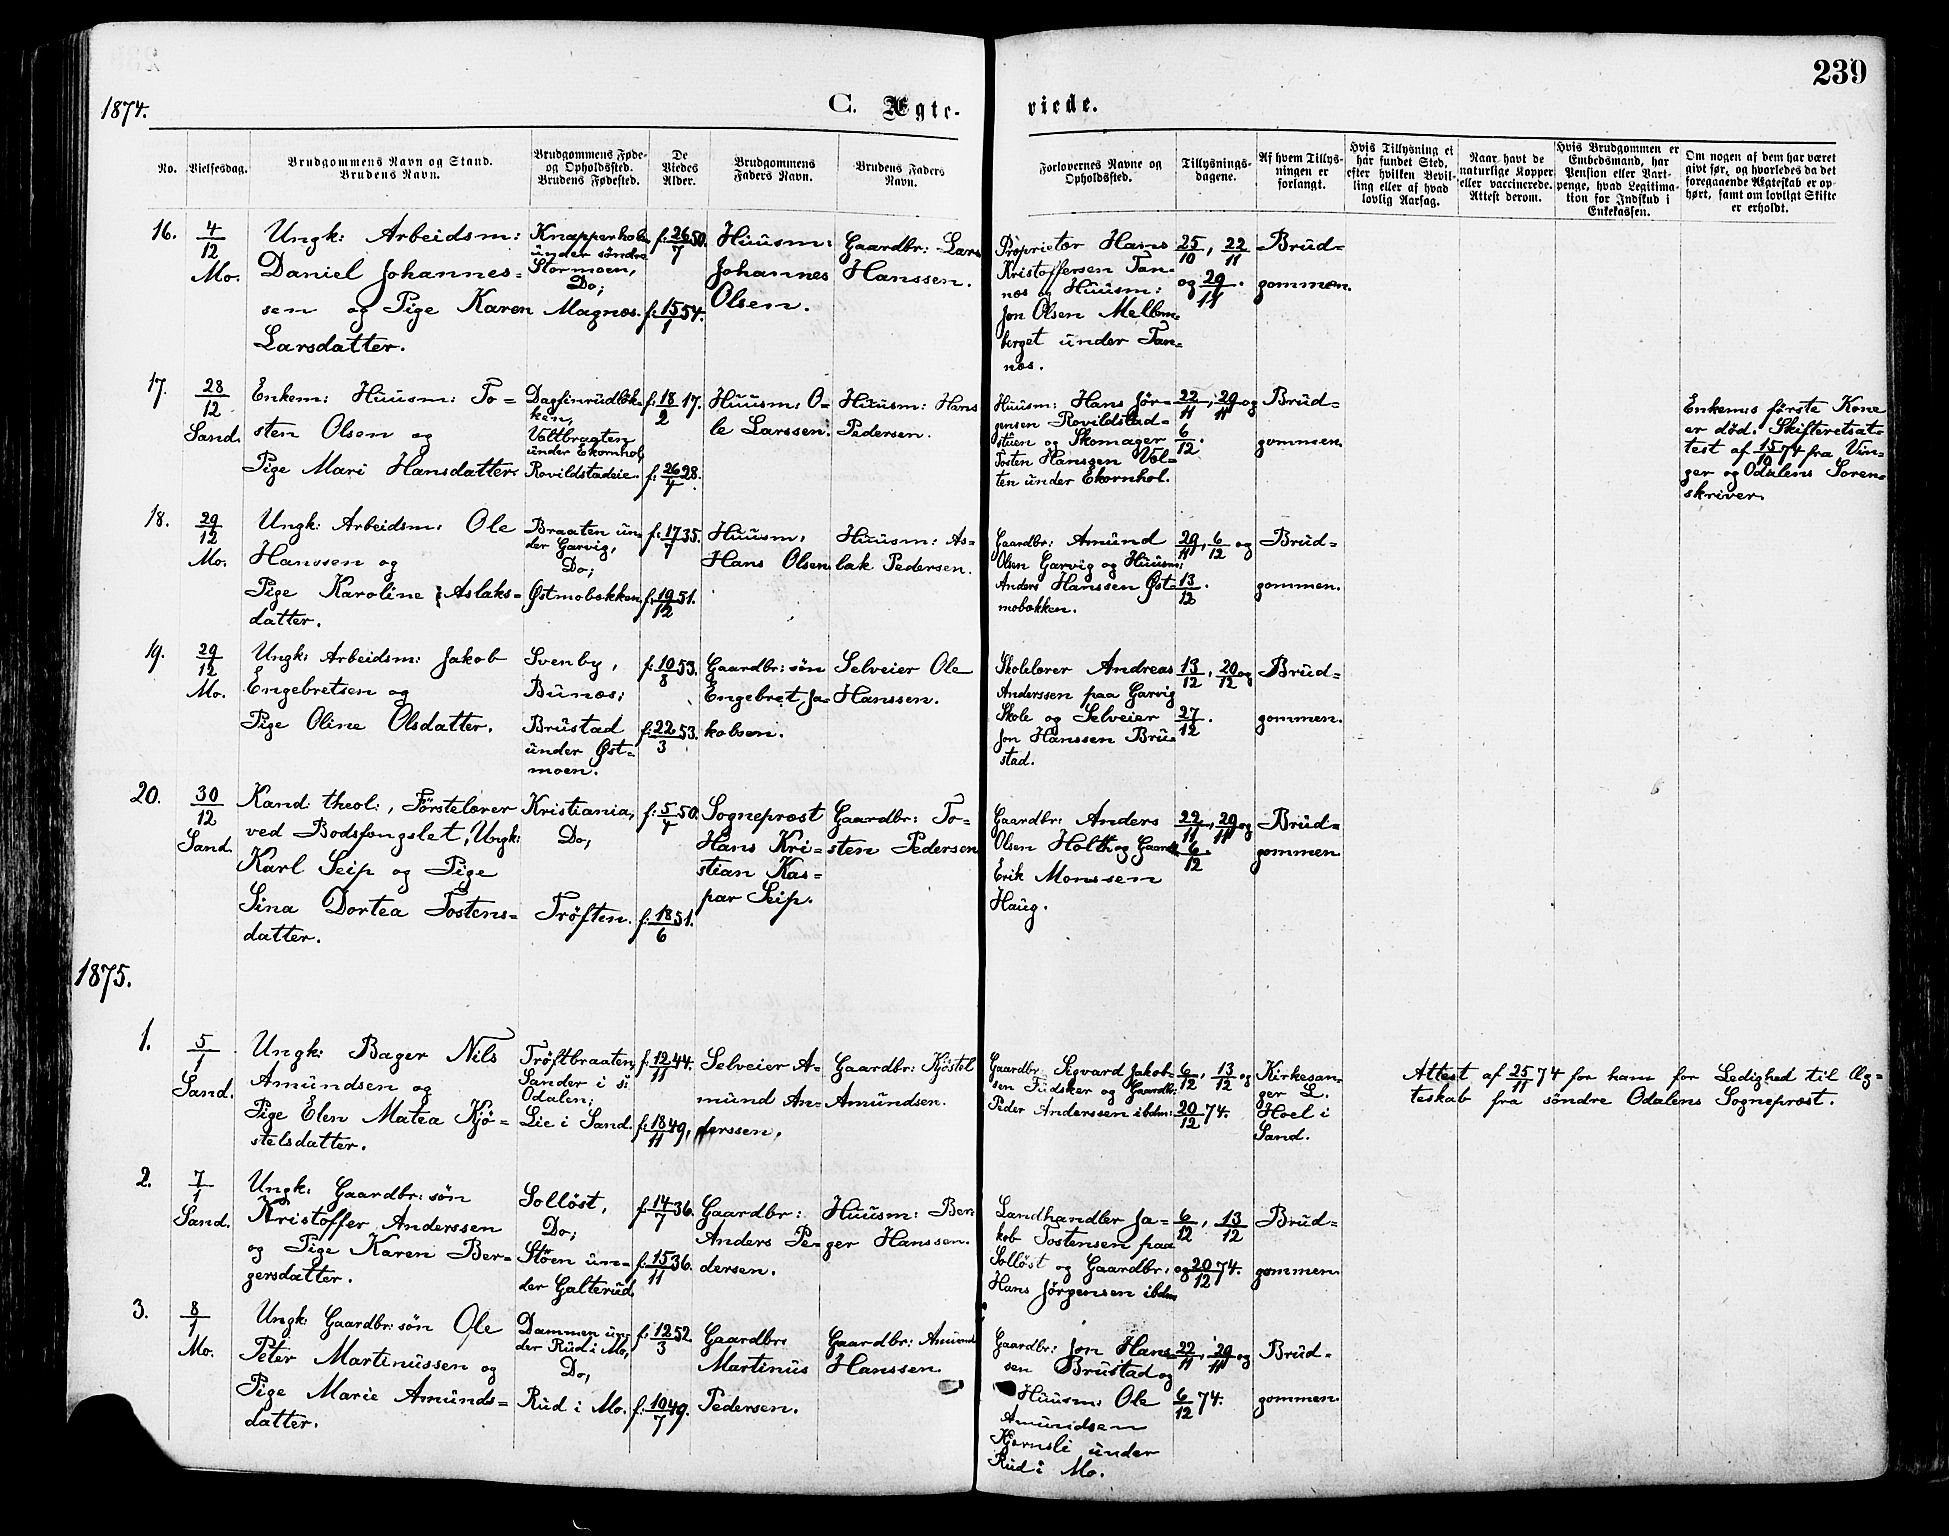 239
1874.
C. Ægte-
viede.
No.
Vielsesdag.
Brudgommens Navn og Stand.
Brudens Navn.
Brudgommens Føde-
og Opholdssted.
Brudens Fødested.
De
Viedes
Alder.
Brudgommens
Faders Navn.
Brudens Faders
Navn.
Forlovernes Navne og
Opholdssted.
Tillysnings-
dagene.
Af hvem Tillys-
ningen er
forlangt.
Hvis Tillysning ei
har fundet Sted,
efter hvilken Bevil-
ling eller af hvad
lovlig Aarsag.
Naar havt de
naturlige Kopper
eller vaccinerede.
Attest derom.
Hvis Brudgommen er
Embedsmand, har
Pension eller Vart-
penge, hvad Legitima-
tion for Indskud i
Enkekassen.
Om nogen af dem har været
givt før, og hvorledes da det
foregaaende Ægteskab er op-
hørt, samt om lovligt Skifte
er erholdt.
16.
4/12
Mo.
Ungk: Arbeidsm:
Daniel Johannes-
sen og Pige Karen
Larsdatter.
Knapperhol
under søndre
Stormoen,
Do;
Magnæs.
f: 26/7 50.
f: 15/1 54.
Huusm:
Johannes
Olsen.
Gaardbr: Lars
Hanssen.
Proprietær Hans
Kristoffersen Tan-
næs og Huusm:
Jon Olsen Mellem-
berget under Tan-
næs.
25/10, 22/11
og 29/11.
Brud-
gommen.
17.
28/12
Sand.
Enkem: Huusm: To-
sten Olsen og
Pige Mari Hansdatter.
Dagfinrudløk-
ken,
Voltbraaten
under Ekornhol,
Rovildstadeie.
f: 18/2 17.
f: 26/4 28.
Huusm: O-
le Larssen.
Huusm: Hans
Pedersen.
Huusm: Hans Jør-
gensen Rovildstad-
stuen og Skomager
Tosten Hanssen Vol-
ten under Ekornhol.
22/11, 29/11 og
6/12.
Brud-
gommen.
Enkem:s første Kone
er død. Skifteretsat-
test af 15/10 74 fra Vin-
ger og Odalens Soren-
skriver.
18.
29/12
Mo.
Ungk: Arbeidsm: Ole
Hanssen og
Pige Karoline Aslaks-
datter.
Braaten un-
der Garvig,
Do;
Østmobakken.
f: 17/7 35.
f: 19/12 51.
Huusm:
Hans Olsen.
Huusm: As-
lak Pedersen.
Gaardbr: Amund
Olsen Garvig og Huusm:
Anders Hanssen Øst-
mobakken.
29/11, 6/12 og
13/12.
Brud-
gommen.
19.
29/12
Mo.
Ungk: Arbeidsm: Jakob
Engebretsen og
Pige Oline Olsdatter.
Svenby,
Bunæs;
Brustad
under Øst-
moen.
f: 10/8 53.
f: 22/3 53.
Gaardbr: søn
Engebret Ja-
kobsen.
Selveier Ole
Hanssen.
Skolelærer Andreas
Anderssen paa Garvig
Skole og Selveier
Jon Hanssen Bru-
stad.
13/12, 20/12 og
27/12.
Brud-
gommen.
20.
30/12
Sand.
Kand: theol:, Førstelærer
ved Bodsfængslet, Ungk:
Karl Seip og Pige
Sina Dortea Tostens-
datter.
Kristiania,
Do;
Trøften.
f: 5/4 50.
f: 18/6 51.
Sogneprest
Hans Kri-
stian Kas-
par Seip.
Gaardbr: To-
sten Pedersen
Gaardbr: Anders
Olsen Holth og Gaardbr
Erik Monssen
Haug.
22/11, 29/11 og
6/12.
Brud-
gommen
1875.
1.
5/1
Sand.
Ungk: Bager Nils
Amundsen og
Pige Elen Matea Kjø-
stelsdatter.
Trøftbraaten,
Sander i s:
Odalen;
Lie i Sand.
f: 12/11 44.
f: 18/11 49,
Selveier A-
mund An-
derssen.
Gaardbr: Kjøstel
Amundsen.
Gaardbr: Sigvard Jakob-
sen Fudsker og Gaardbr:
Peder Anderssen ibdm:
6/12, 13/12 og
20/12 74.
Kirkesan-
ger L.
Hoel i
Sand.
Attest af 25/11 74 for ham for Ledighed til Æg-
teskab fra søndre Odalens Sogneprest.
2.
7/1
Sand.
Ungk: Gaardbr: søn
Kristoffer Anderssen
og Pige Karen Ber-
gersdatter.
Solløst,
Do;
Støen un-
der Galterud.
f: 14/7 36.
f: 15/11 36.
Gaardbr:
Anders Pe-
dersen.
Huusm: Ber-
ger Hanssen.
Landhandler Ja-
kob Tostensen paa
Solløst og Gaardbr:
Hans Jørgensen ibdm
6/12, 13/12
og 20/12 74.
Brud-
gommen.
3.
8/1
Mo.
Ungk: Gaardbr: søn Ole
Peter Martinussen og
Pige Marie Amunds-
datter.
Dammen un-
der Rud i Mo,
Do,
Rud i Mo.
f: 12/3 52.
f: 10/7 49.
Gaardbr:
Martinus
Pedersen.
Gaardbr: Amund
Hanssen.
Gaardbr: Jon Hans-
sen Brustad og
Huusm: Ole
Amundsen
Kjernsli under
Rud i Mo.
22/11, 29/11 og
6/12 74.
Brud-
gommen.